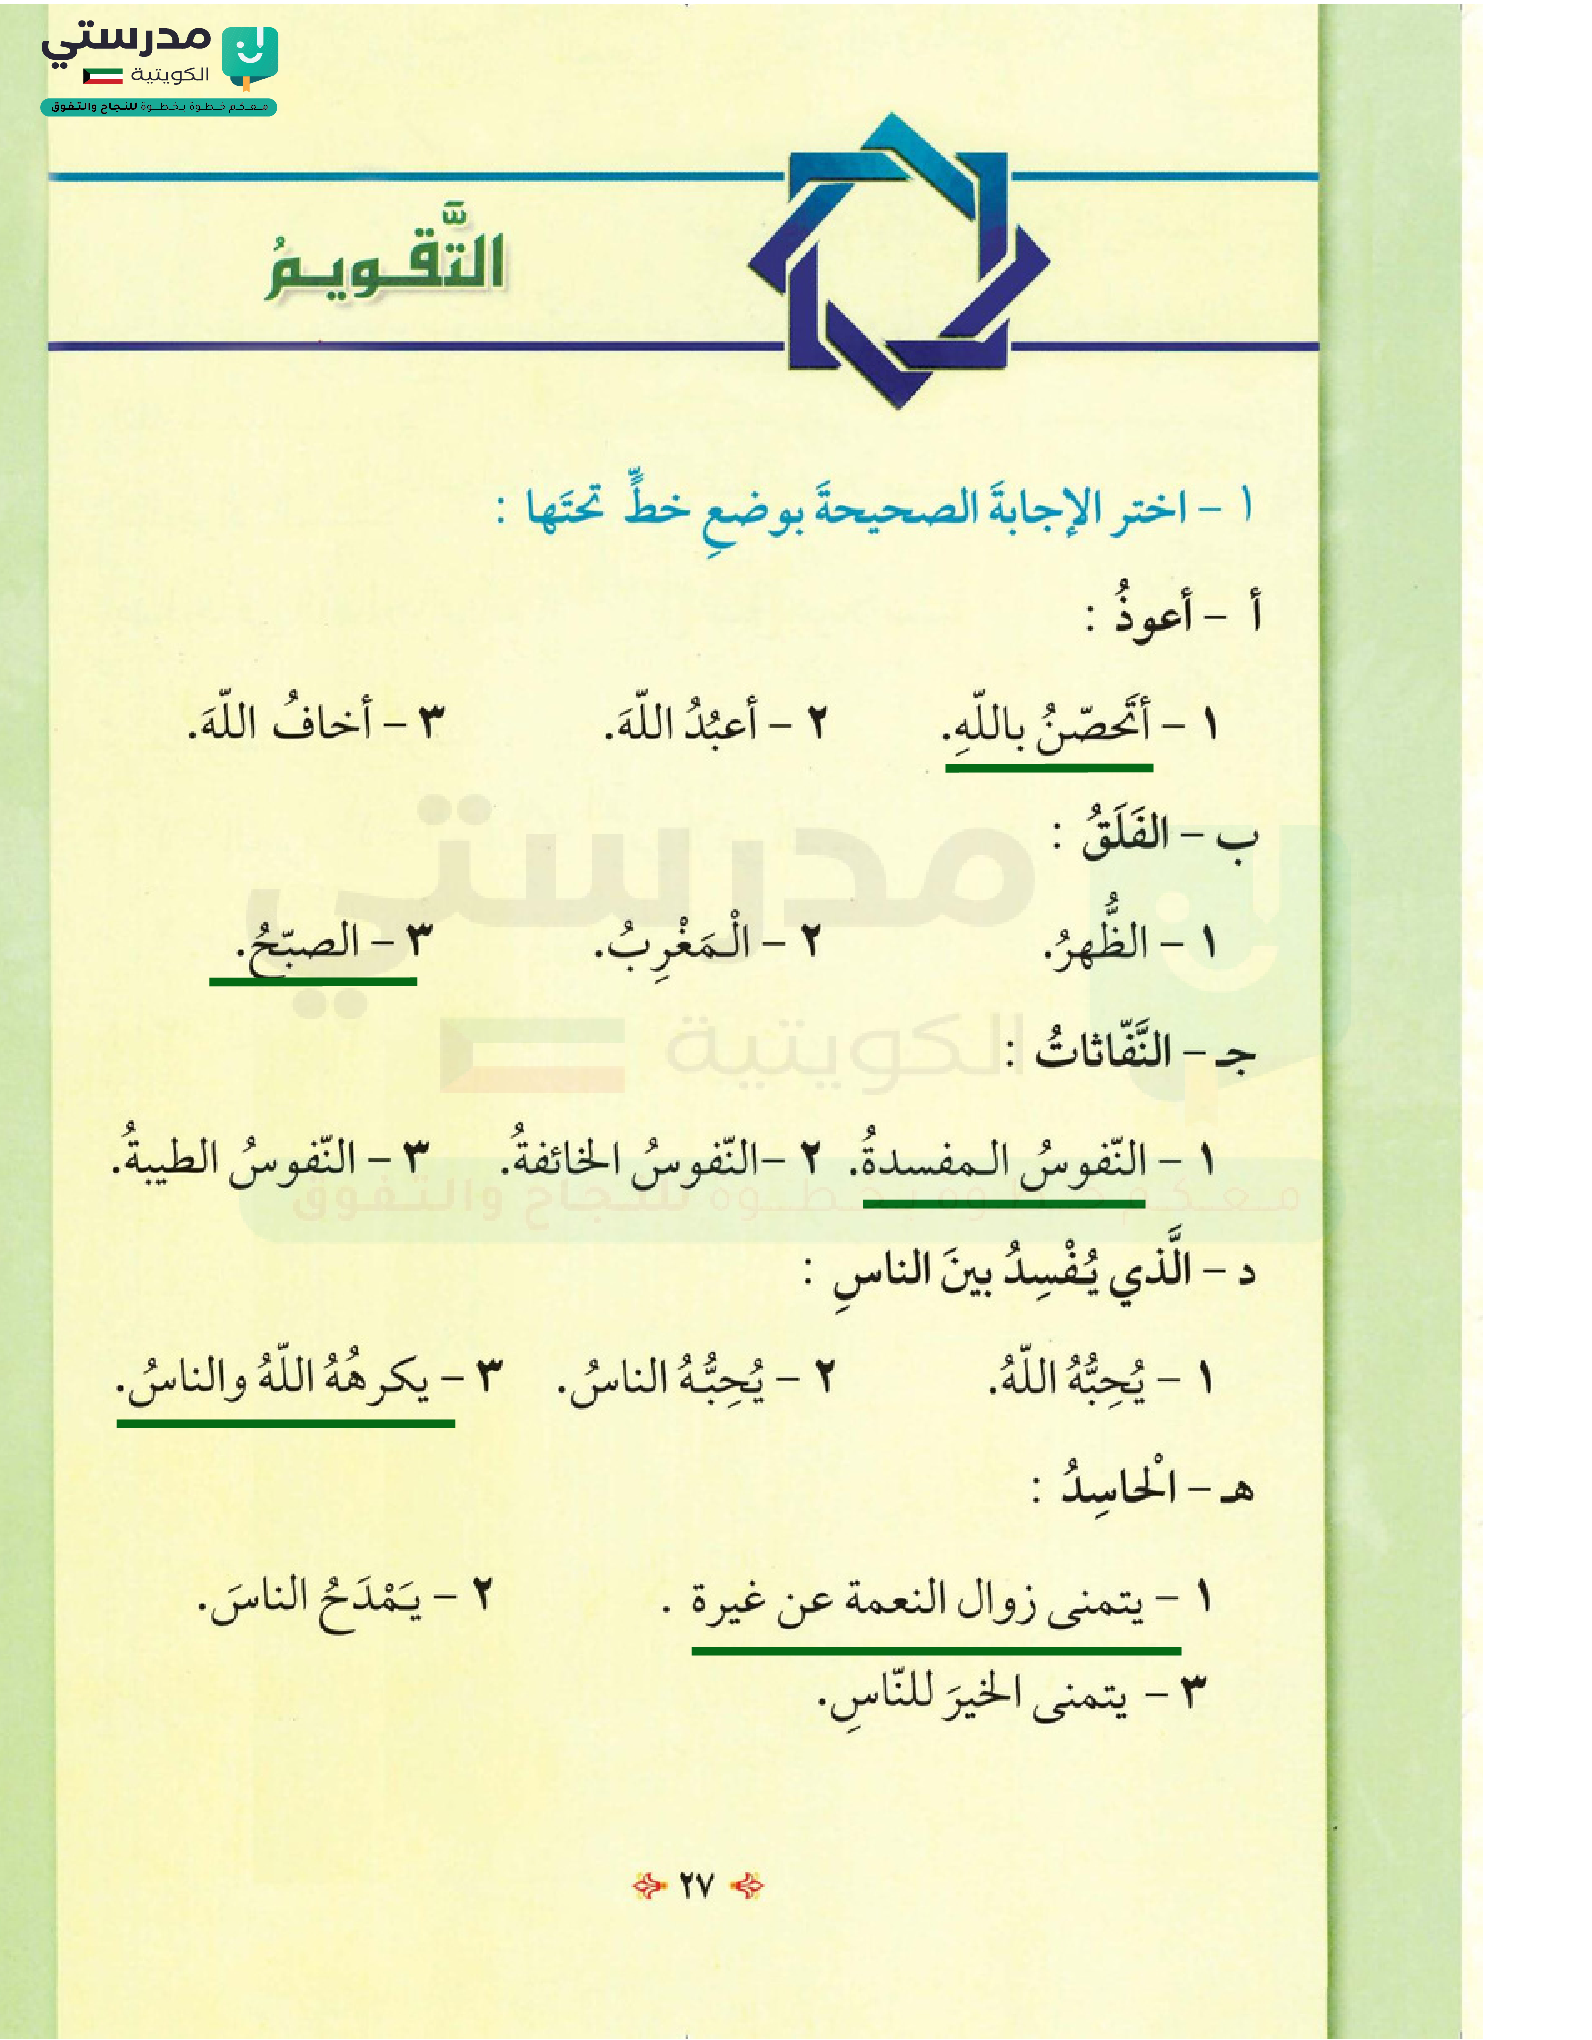 مدرستي
الكويتية
معكم خطوة بخطوة للنجاح والتفوق
التَّقويمُ
١ - اختر الإجابةَ الصحيحةَ بوضعِ خطٍّ تحتَها :
أ - أعوذُ :
١ - أتَحصّنُ باللّهِ. ٢ - أعبُدُ اللّهَ. ٣ - أخافُ اللّهَ.
ب - الفَلَقُ :
١ - الظُّهرُ. ٢ - الْمَغْرِبُ. ٣ - الصبّحُ.
جـ - النَّفّاثاتُ :
١ - النّفوسُ المفسدةُ. ٢ - النّفوسُ الخائفةُ. ٣ - النّفوسُ الطيبةُ.
د - الَّذي يُفْسِدُ بينَ الناسِ :
١ - يُحِبُّهُ اللّهُ. ٢ - يُحِبُّهُ الناسُ. ٣ - يكرهُهُ اللّهُ والناسُ.
هـ - الْحاسِدُ :
١ - يتمنى زوال النعمة عن غيرة . ٢ - يَمْدَحُ الناسَ.
٣ - يتمنى الخيرَ للنّاسِ.
٢٧
مدرستي
الكويتية
معكم خطوة بخطوة للنجاح والتفوق